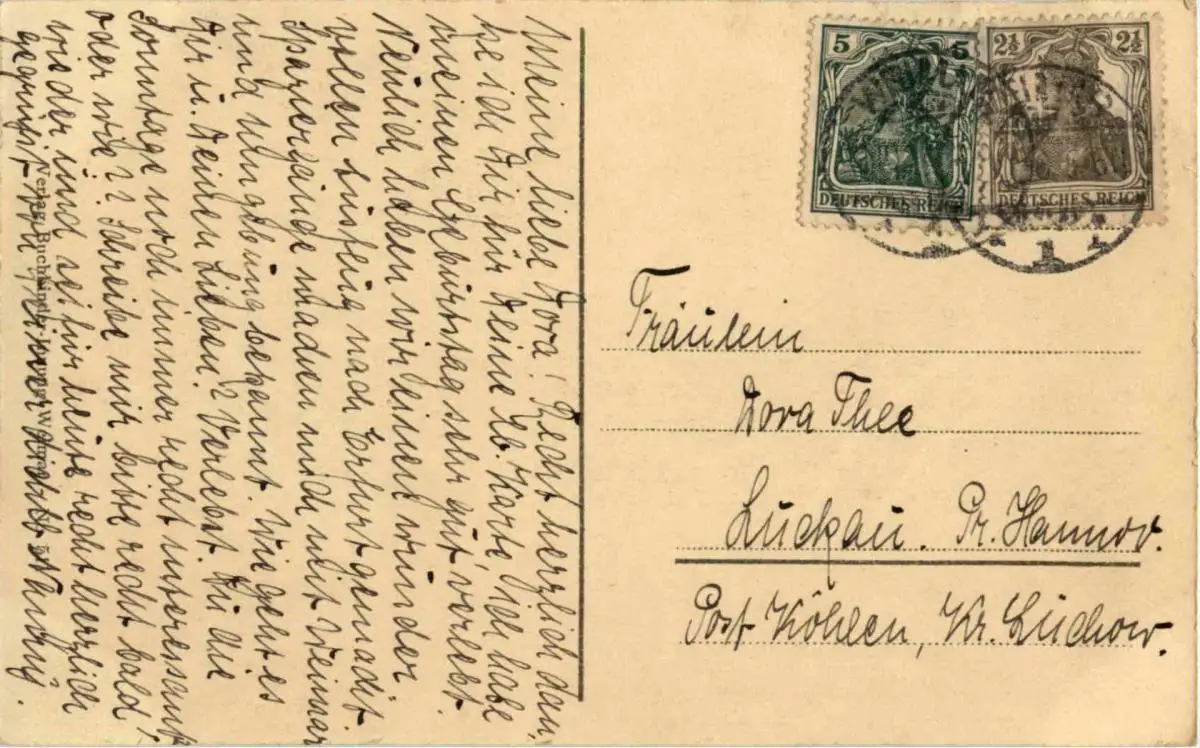 Meine liebe Dora! Recht herzlich dan,
ke ich dir für deine lb. Karte, ich habe
meinen Geburtstag sehr gut verlebt.
Neulich haben wir einen wunder
vollen Ausflug nach Erfurt gemacht.
Spaziergänge machen mich mit Weimar
und Umgebung bekannt. Wie geht es
dir u. deinen Lieben? Verlebst du die
Sonntage noch immer recht interessant,
oder wie?? Schreibe mir bitte recht bald
wieder und sei für heute recht herzlich
gegrüßt von deiner
Verlag: Buchbinder-Innung, Weimar
5
5
DEUTSCHES REICH
2½
2½
DEUTSCHES REICH
Fräulein
Dora Thee
Luckau. Pr. Hannov.
Post Köhlen, Kr. Lüchow.